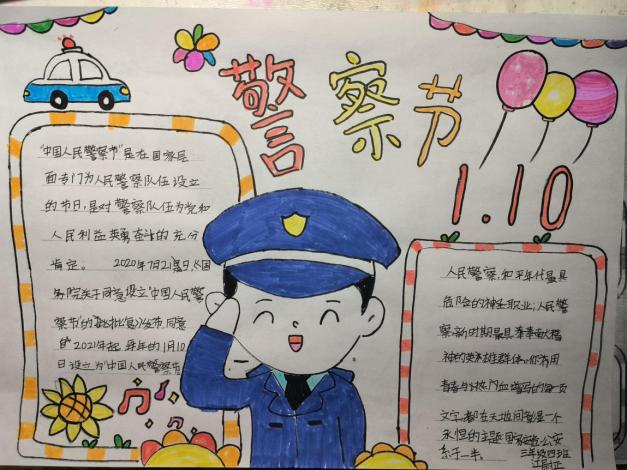 警察节
1.10
"中国人民警察节"是在国家层
面专门为人民警察队伍设立
的节日,是对警察队伍为党和
人民利益英勇奋斗的充分
肯定。 2020年7月21日
务院关于同意设立"中国人民警
察节"的批复》发布同意
自2021年起,每年的1月10
日设立为"中国人民警察节
人民警察,和平年代最具
危险的神圣职业;人民警
察新时期最具牺牲奉献精
神的英雄群体。你们用
青春与热血谱写的每一页
文字都在天地间
永恒的主题
三年级四班